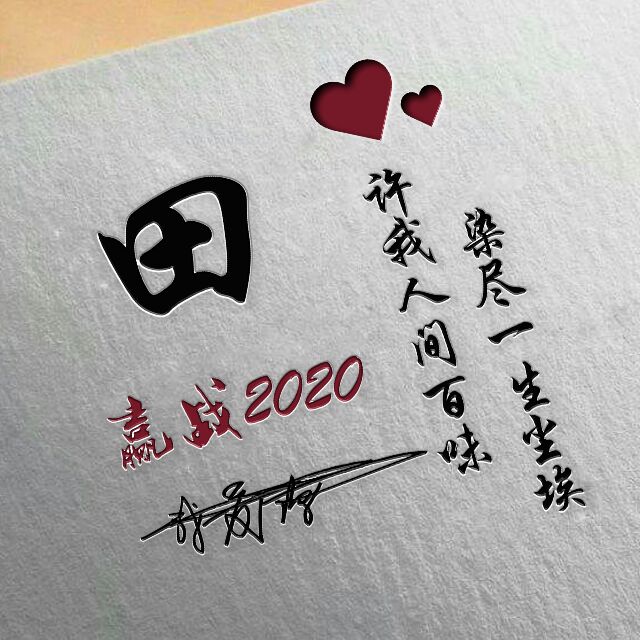 田
赢战2020
许我人间百味
染尽一生尘埃